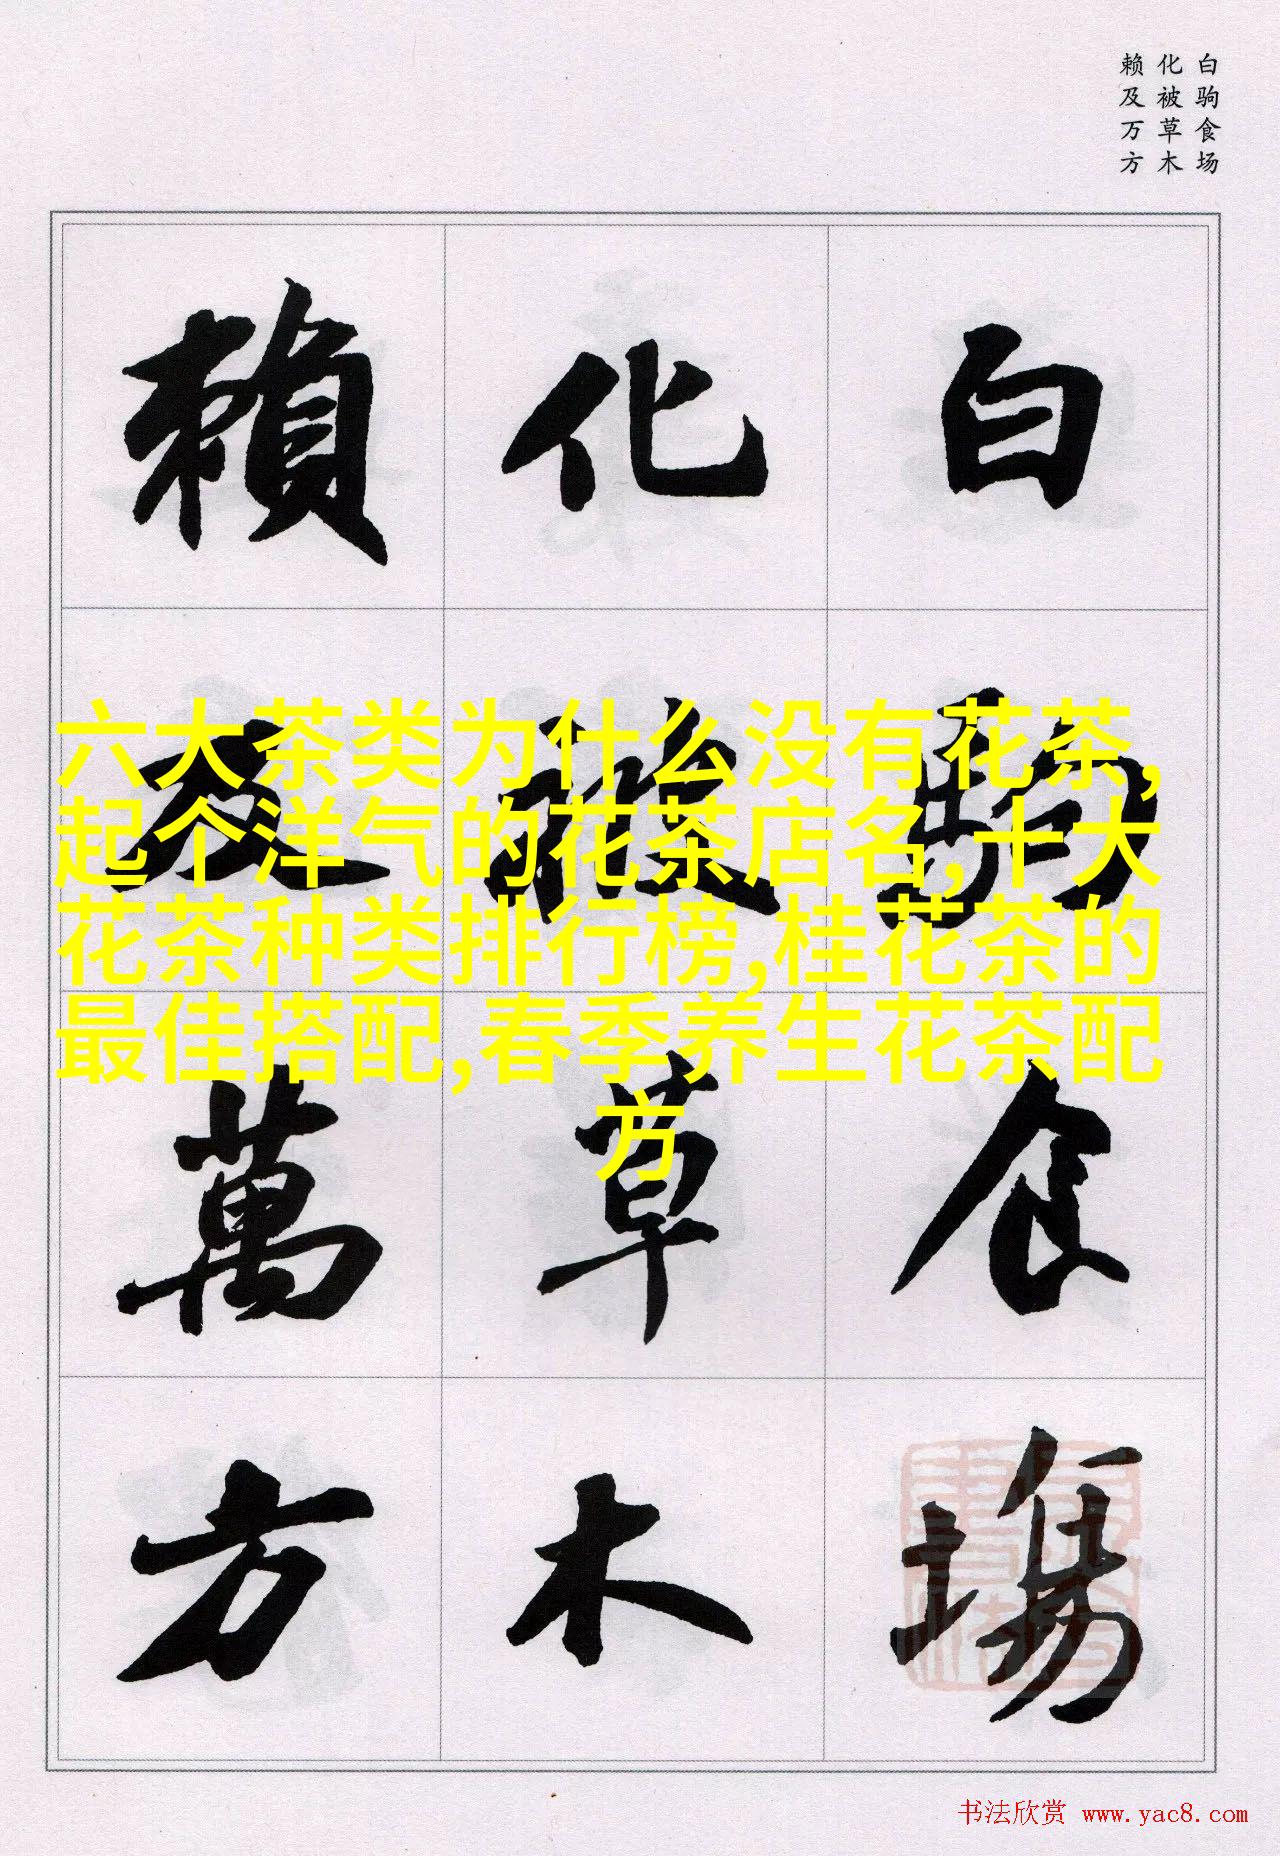 白驹食场
化被草木
赖及万方
白駒食場
化被草木
賴及萬方
六大茶类为什么没有花茶,
起个洋气的花茶店名,十大
花茶种类排行榜,桂花茶的
最佳搭配,春季养生花茶配
方
书法欣赏 www.yac8.com